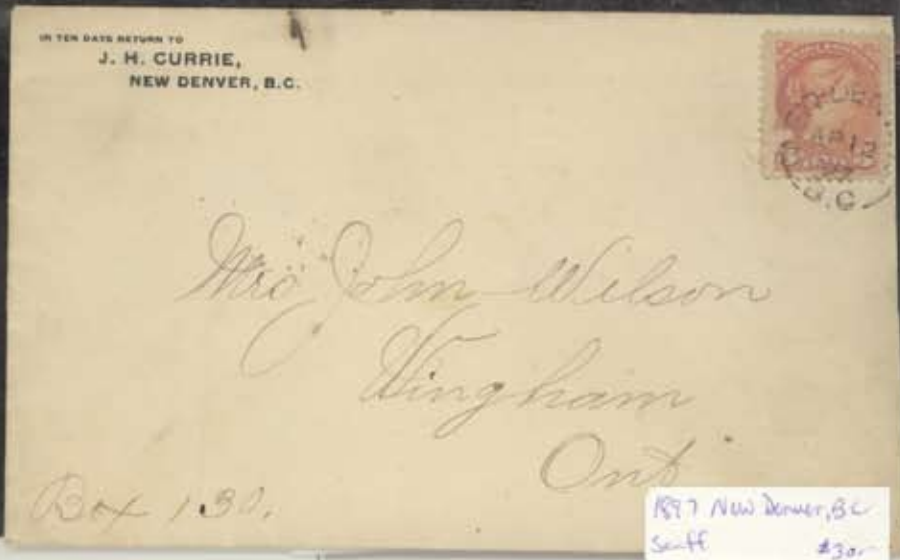 IN TEN DAYS RETURN TO
J. H. CURRIE,
NEW DENVER, B.C.
AP 12
B.C.
Mrs John Wilson
Wingham
Ont
Box 130.
1897 New Denver, BC
scuff $30.-